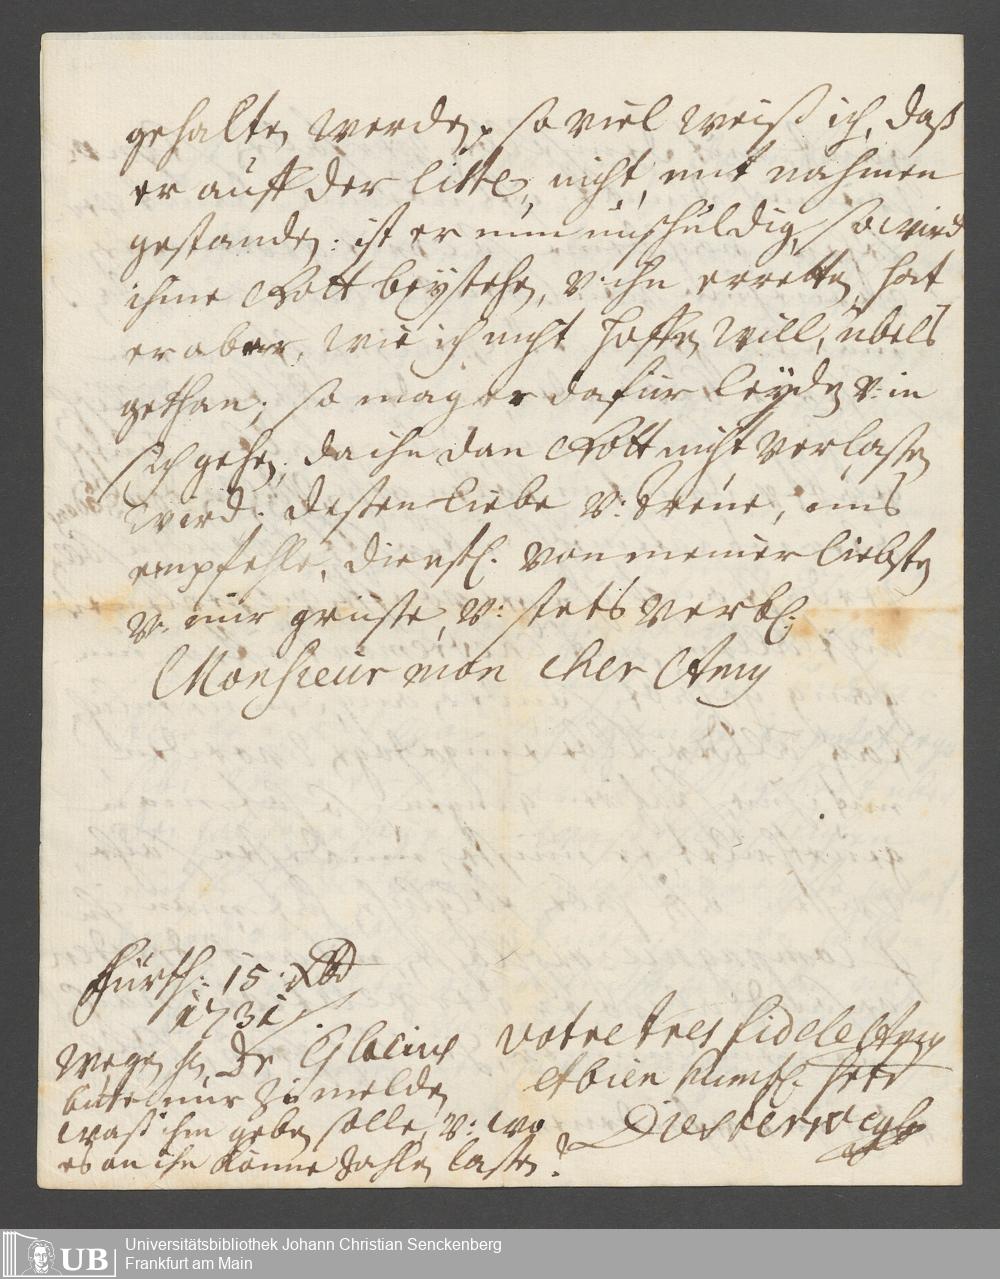 gehalten werden. so viel weiß ich, daß
er auff der liste, nicht, mit nahmen
gestanden: ist er nun unschuldig, so wird
ihme Gott beystehen, v: ihn erretten, hat
er aber, wie ich nicht hoffen will, übels
gethan; so mag er dafür leyden v: in
sich gehen, da ihn dan Gott nicht verlassen
wird. dessen Liebe v: Treüe, uns
empfehle, dienstl. von meiner liebsten
v. mir grüße, v: stets verbl:
Monsieur mon cher Amy
15.
1731
votre tres fidele Amy
wegen H. Dr
et bien humbl. serv
bitte mir zu melden
waß ihm geben solle, v: wo
Diesterweg
es an ihn könne zahlen lassen?
UB
Universitätsbibliothek Johann Christian Senckenberg
Frankfurt am Main